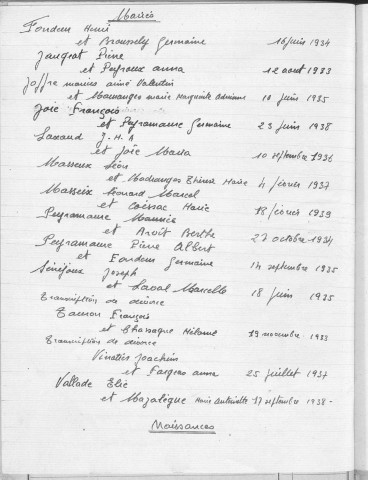 Mariés
Fondem Henri
et Brousely Germaine 16 juin 1934
Jaugrat Pierre
et Peyroux anna 12 aout 1933
Joffre marius aimé Valentin
et marie Marguerite 10 juin 1935
Joie François
et Peyramaure Germaine 23 juin 1938
J. H. A
et Joie Maria 10 septembre 1936
Masseix Léon
et Thérèse Marie 4 février 1937
Masseix Edouard Marcel
et Coissac Marie 18 février 1939
Peyramaure Maurice
et Broit Berthe 27 octobre 1934
Peyramaure Pierre Albert
et Fondem Germaine 14 septembre 1935
Sénéjoux Joseph
et Laval Marcelle 18 juin 1935
transcription de divorce
François
et Chassagne 19 novembre 1933
transcription de divorce
Vinatier Joachim
et Fargeas anna 25 juillet 1937
Vallade Elie
et Mazalègue Marie Antoinette 17 septembre 1938 -
Naissances